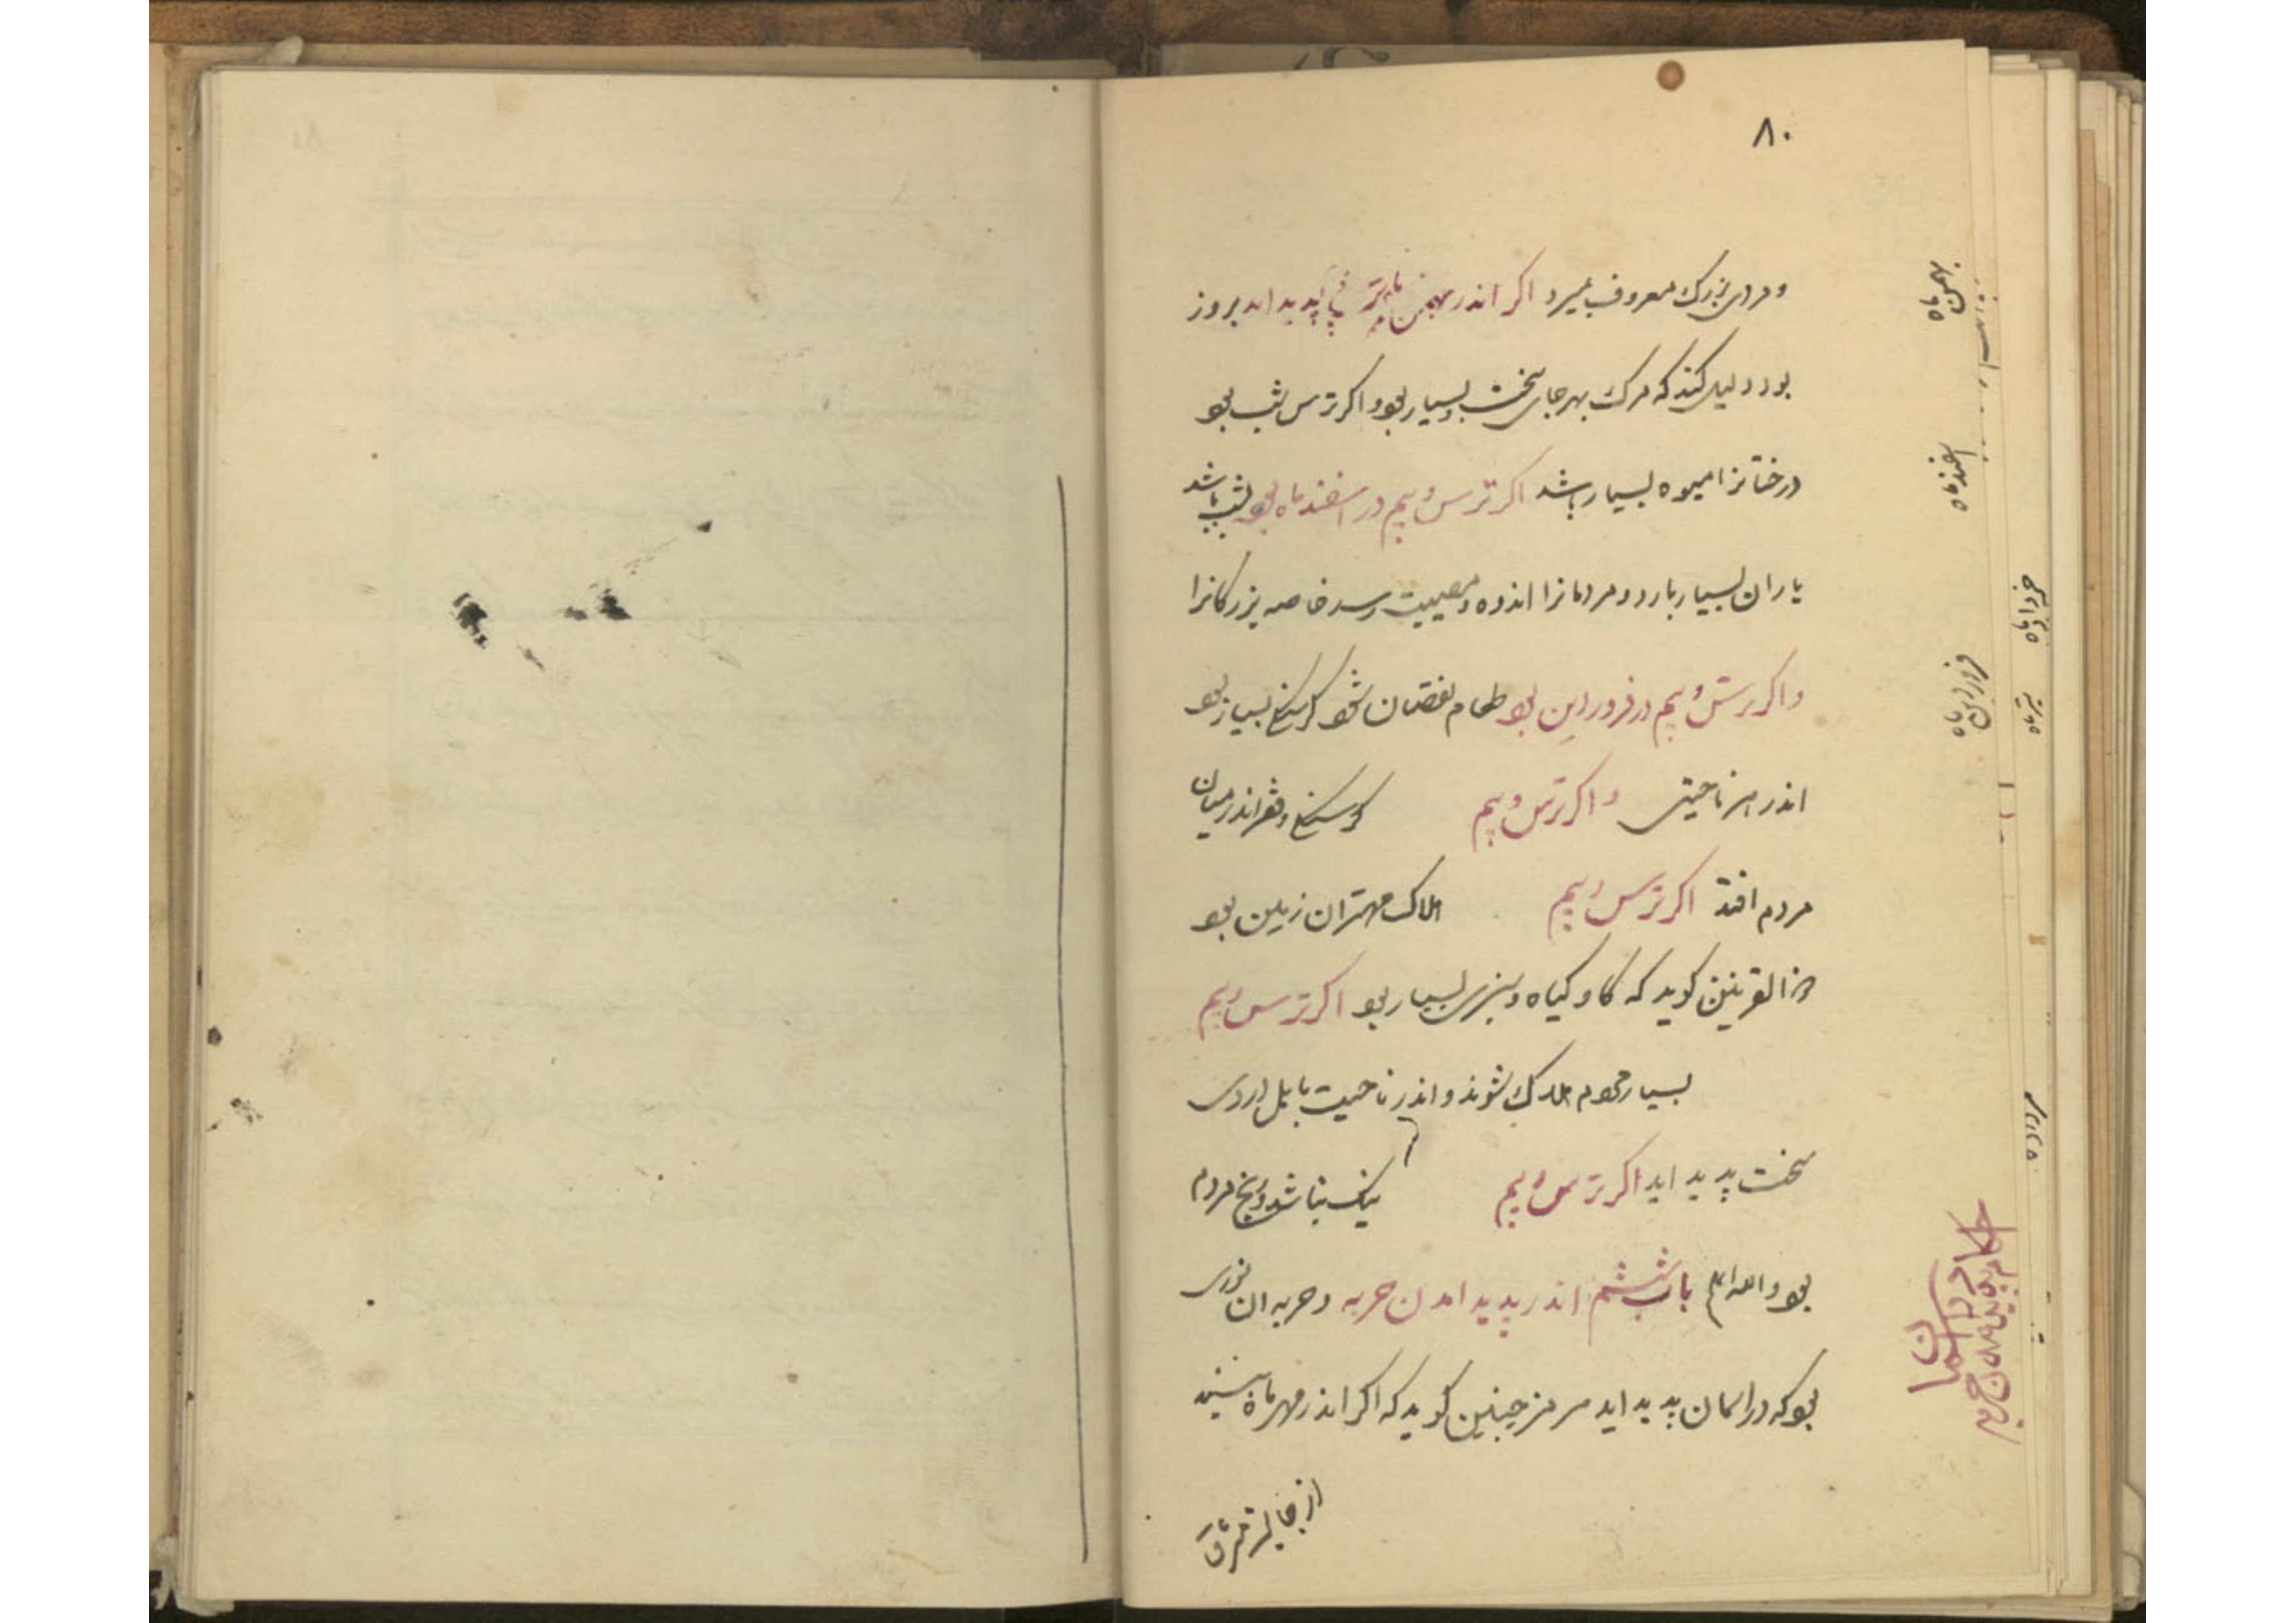 ۸۰
و مردی بزرک معروف بمیرد اکر اندر بهمن ماه ترسی پدید اید بروز
بود دلیل کند که مرک بهر جای سخت و بسیار بود و اکر ترس بشب بود
درختانرا میوه بسیار باشد اکر ترس و بیم در اسفند ماه بود بشب باشد
باران بسیار بارد و مردمانرا اندوه و مصیبت رسد خاصه بزرکانرا
و اکر ترس و بیم در فروردین بود طعام نقصان شود کرسنکی بسیار بود
اندر هر ناحیتی و اکر ترس و بیم کرسنکی و فقر اندر میان
مردم افتد اکر ترس و بیم هلاک مهتران زمین بود
ذا القرنین کوید که کاو و کیاه و سبزی بسیار بود اکر ترس و بیم
بسیار مردم هلاک شوند و اندر ناحیت بابل دردی
سخت پدید اید اکر ترس و بیم نیک نباشد و رنج مردم
بود والله اعلم باب ششم اندر پدید امدن حربه و حربه ان نوری
بود که در اسمان پدید اید هرمز چنین کوید که اکر اندر مهر ماه بینند
از جانب مشرق
بهمن ماه
اسفند ماه
فروردین ماه
خرداد ماه
تیر ماه
مرداد ماه
احکام پدید امدن حربه در اسمان